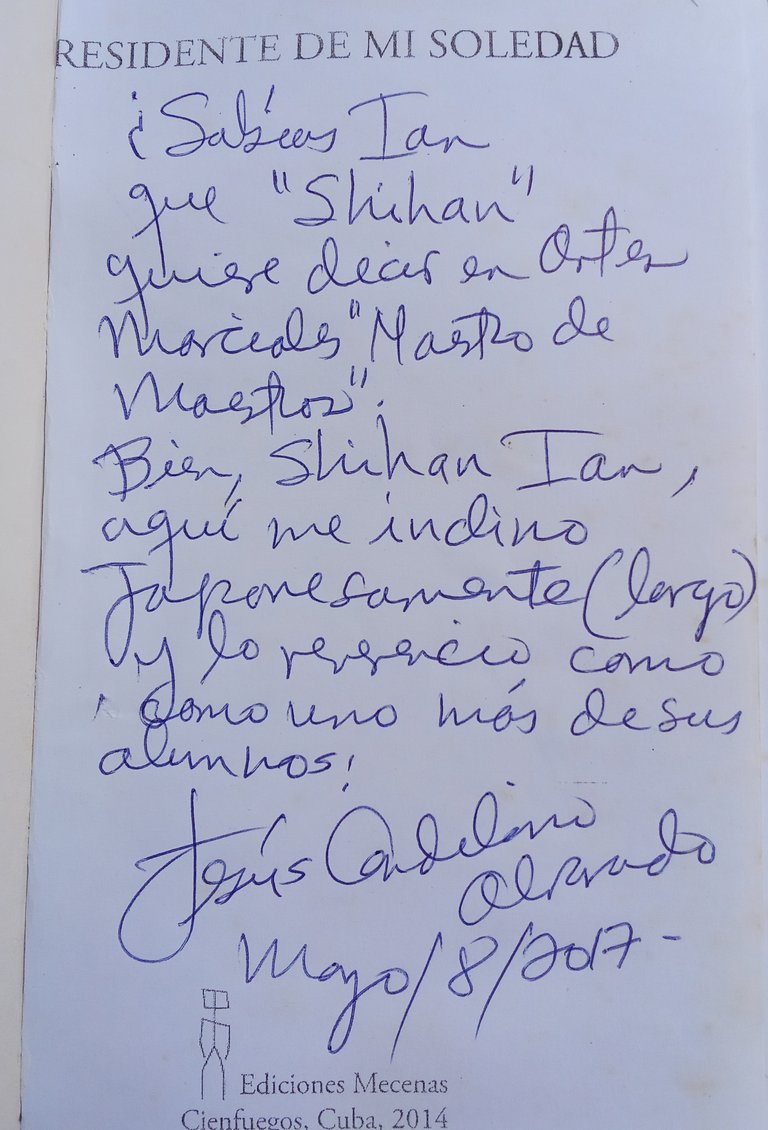 RESIDENTE DE MI SOLEDAD
¿Sabías Ian
que "Shihan"
quiere decir en Artes
Marciales "Mastro de
Maestros".
Bien, Shihan Ian,
aquí me inclino
Japonesamente (largo)
y lo reverencio como
como uno más de sus
alumnos!
Jesús Candelario
Alvarado
Mayo/8/2017-
Ediciones Mecenas
Cienfuegos, Cuba, 2014